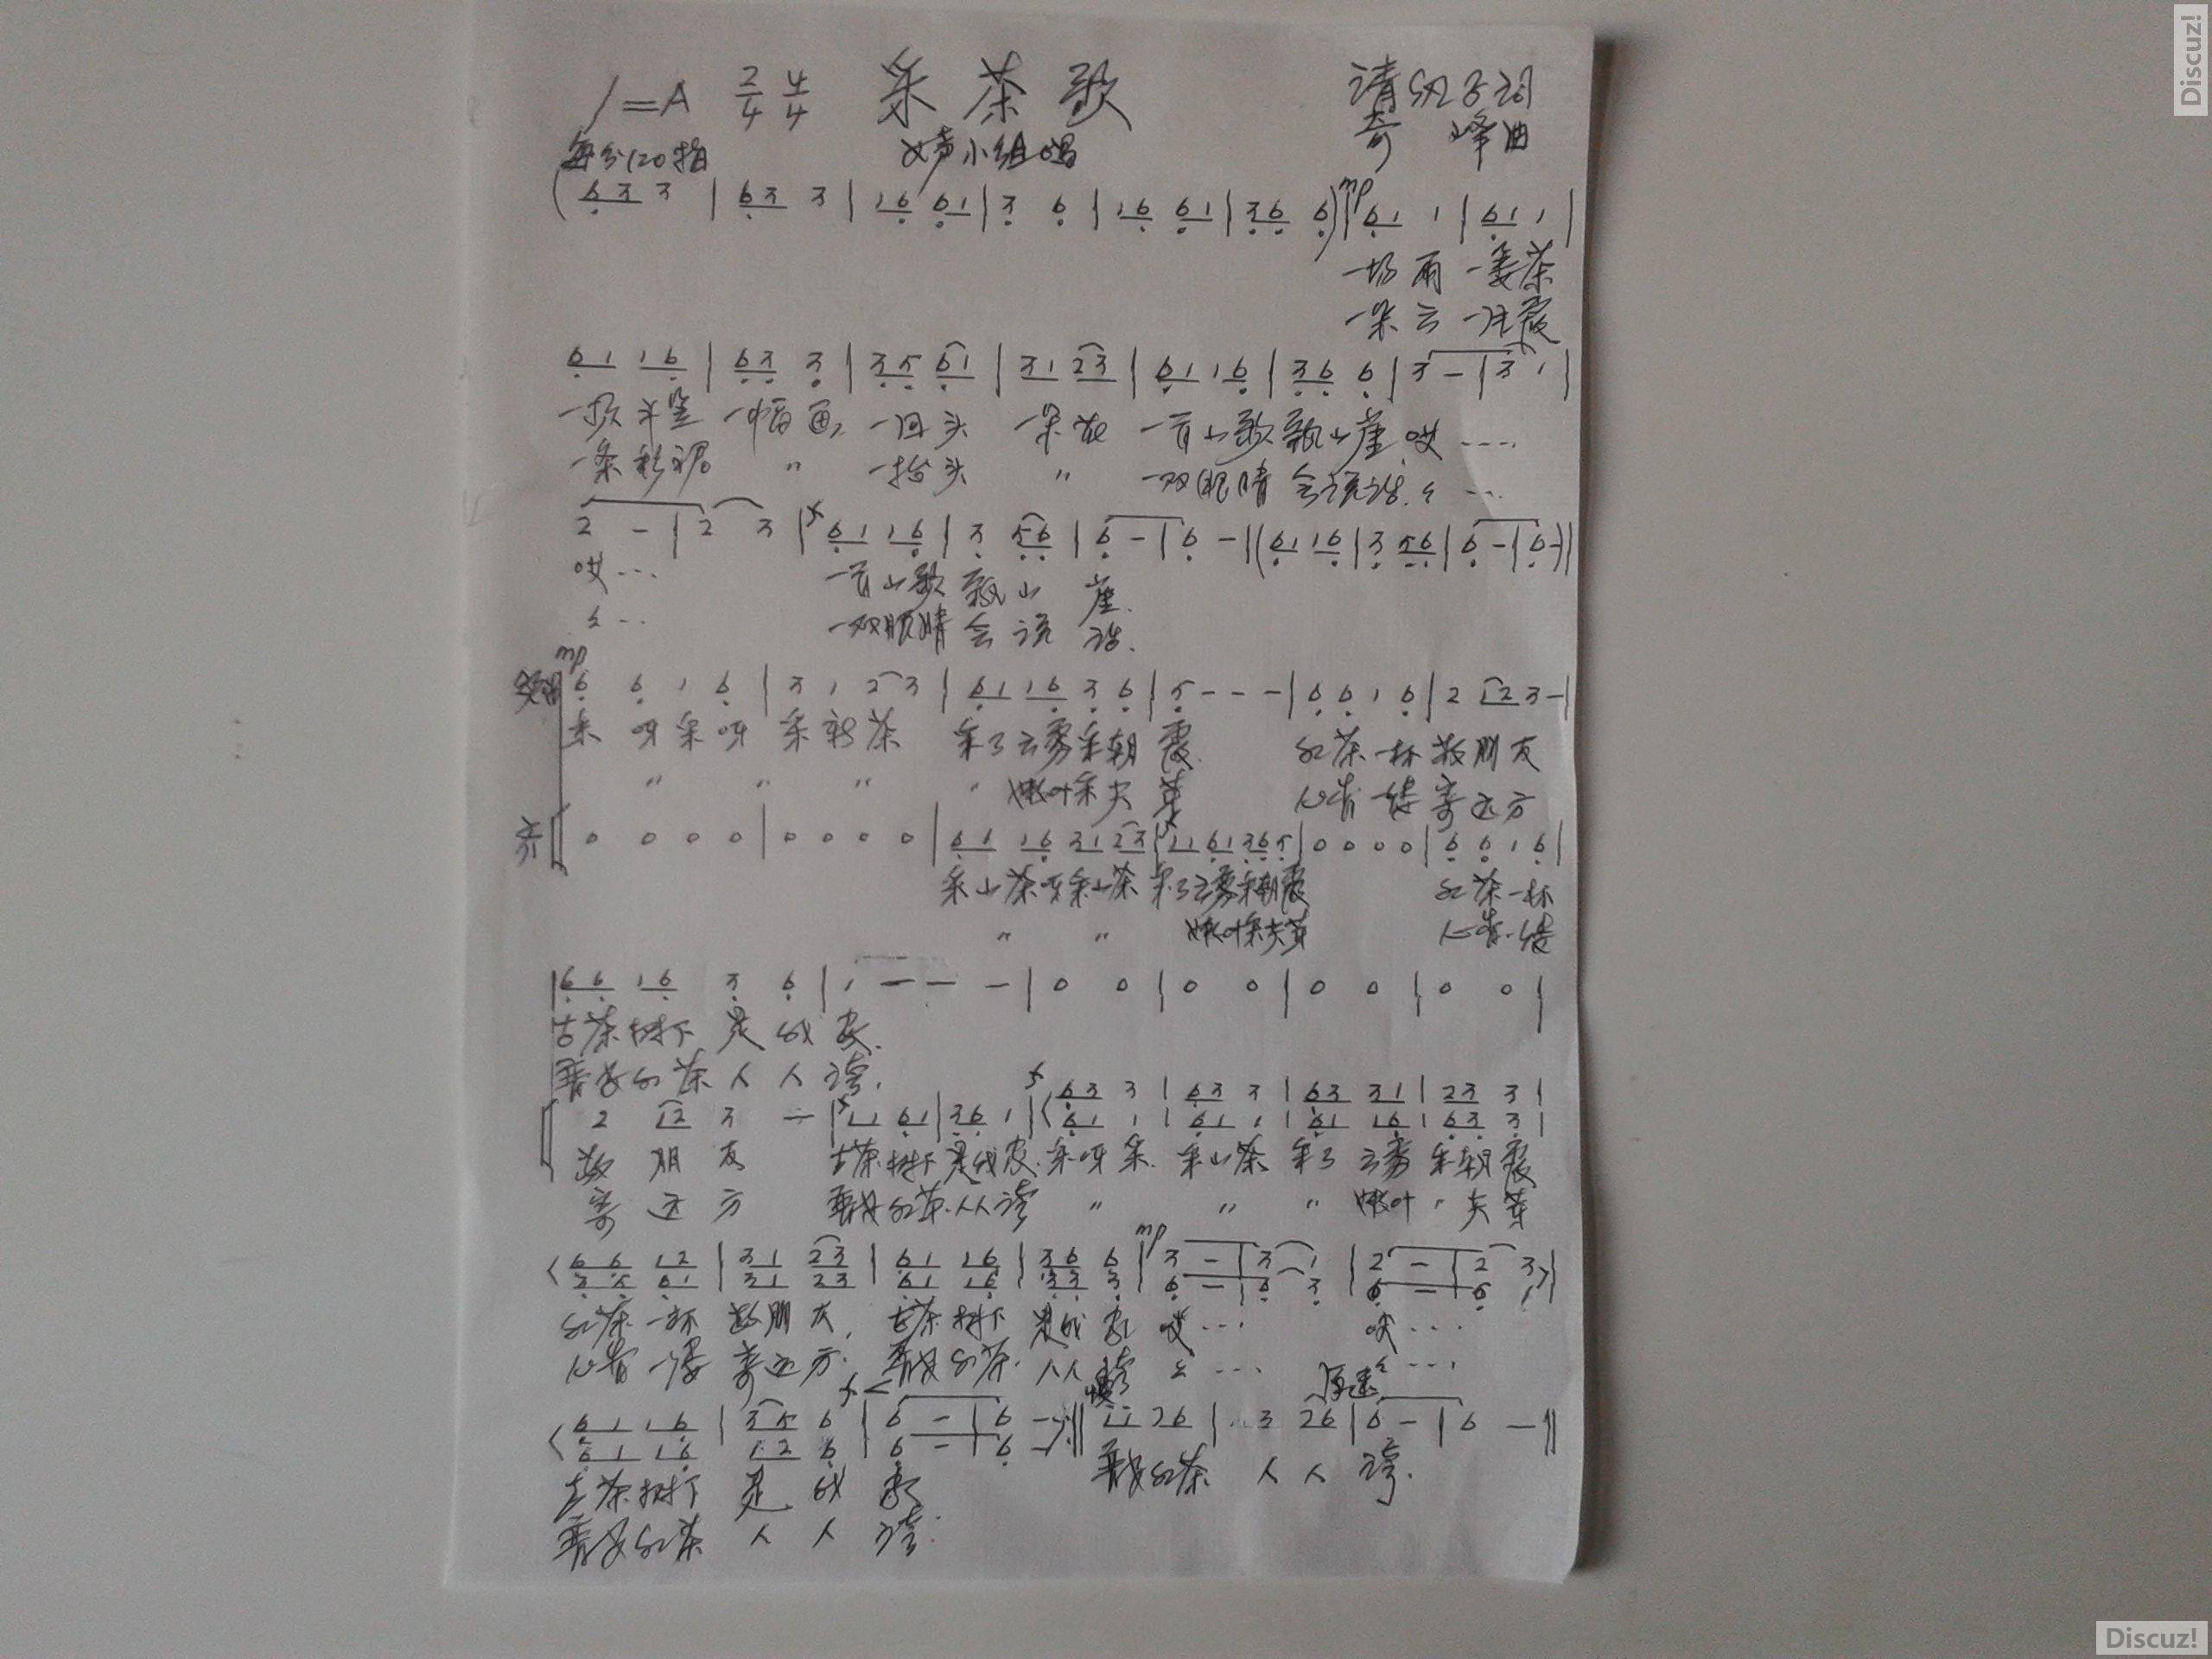 1=A 2/4 4/4 采茶歌
词
每分120拍 女声小组唱 奇峰曲
(63 3 | 63 3 | 16 61 | 3 6 | 16 61 | 36 6) | mp 61 1 | 61 1 |
一场雨 一篓茶
一朵云 一片霞
61 16 | 63 3 | 35 61 | 31 23 | 61 16 | 36 6 | 3 - | 3 1 |
一顶斗笠 一幅画, 一回头 一朵花 一首山歌飘山崖 哎 ....
一条彩裙 〃 一抬头 〃 一双眼睛会说话. 〻 ...
2 - | 2 3 | f 61 16 | 3 56 | 6 - | 6 - | (61 16 | 3 56 | 6 - | 6 -) ||
哎... 一首山歌飘山崖.
〻.. 一双眼睛会说话.
mp
6 6 1 6 | 3 1 2 3 | 61 16 3 6 | 5 - - - | 6 6 1 6 | 2 12 3 - |
采呀采呀采新茶 采了云雾采朝霞. 红茶一杯敬朋友
〃 〃 〃 〃 嫩叶采尖芽 心情一缕寄远方
齐 0 0 0 0 | 0 0 0 0 | 61 16 31 23 | 11 61 36 5 | 0 0 0 0 | 6 6 1 6 |
采山茶呀采山茶 采了云雾采朝霞 红茶一杯
〃 〃 嫩叶采尖芽 心情一缕
66 16 3 6 | 1 - - - | 0 0 | 0 0 | 0 0 | 0 0 |
古茶树下是我家.
红茶人人夸.
f 63 3 | 63 3 | 63 31 | 23 3 |
2 12 3 - | f 11 61 | 36 1 | 61 1 | 61 1 | 61 16 | 63 3 |
敬朋友 古茶树下是我家. 采呀采. 采山茶 采了云雾采朝霞
寄远方 红茶人人夸 〃 〃 〃 嫩叶〃尖芽
mp
66 12 | 31 23 | 61 16 | 36 6 | 3 - | 3 1 | 2 - | 2 3 |
55 61 | 31 23 | 61 16 | 33 3 | 6 - | 6 3 | 6 - | 6 1 |
红茶一杯敬朋友, 古茶树下是我家 哎... 哎...
心情一缕寄远方. 红茶人人夸 〻... 〻...
f < 慢 原速
61 16 | 35 6 | 6 - | 6 - :|| 11 26 | 3 26 | 6 - | 6 - ||
61 16 | 12 6 | 6 - | 6 -
古茶树下是我家 红茶人人夸.
红茶人人夸.
Discuz!
Discuz!